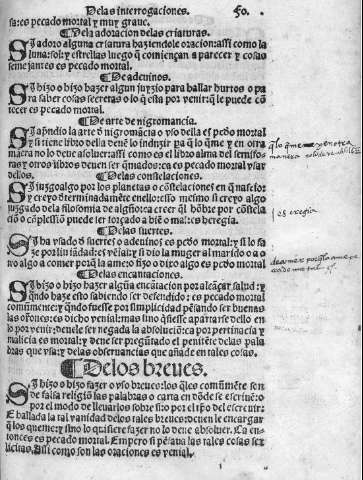 Delas interrogaciones. fo.
sa: es pecado mortal y muy graue.
¶ Dela adoracion delas criaturas.
Si adoro alguna criatura haziendole oracion: assi como la
luna: sol: y estrellas luego q̃ comiençan a parecer y cosas
semejantes es pecado mortal.
¶ De adeuinos.
Si hizo o hizo hazer algun juyzio para hallar hurtos o pa
ra saber cosas secretas o lo q̃ esta por venir: q̃ le puede cõ
tecer es pecado mortal.
¶ De arte de nigromancia.
Si aprẽdio la arte ð nigromãcia o vso della es pcðo mortal
y si tiene libro della deuẽ lo induzir pa q̃ lo q̃me y en otra
macra no lo deue asoluer: assi como es el libro
y otros libros deuen ser q̃mados: ca es pecado mortal vsar
dellos. ¶ Delas constelaciones.
Si juzgo algo por los planetas o cõstelaciones en q̃ nascior
y creyo ðterminadamẽte enello: esso mesmo si creyo algo
juzgado dela filosomia de algũo: ca creer q̃l hõbre por cõstela
ciõ o cõplessiõ puede ser forçado a biẽ o mal: es heregia.
¶ Delas suertes.
Si ha vsado ð suertes o adeuinos es pcðo mortal: y si lo fa
ze por liuiãdad: es vẽial: y si dio la muger al marido o a o
tro algo a comer porq̃ la ame o hizo o dixo algo es pcðo mortal
¶ Delas encantaciones.
Si hizo o hizo hazer algũa encãtacion por alcãçar salud: y
q̃ndo haze esto sabiendo ser defendido: es pecado mortal
comũmente: y q̃ndo fuesse por simplicidad pẽsando ser buenas
las orões: es dicho venial: mas sino q̃siesse apartarse dello en
lo por venir: deuele ser negada la absoluciõ: ca por pertinacia y
malicia es mortal: y deue ser pregũtado el penitẽte delas pala
bras que vsa: y delas obseruancias que añade en tales cosas.
¶ Delos breues.
Si hizo o hizo fazer o vso breues: los q̃les comũmẽte son
de falsa religiõ las palabras o carta en dõde se escriuẽ: o
por el modo de lleuarlos sobre si: o por el tpõ del escreuir:
E ballada la tal vanidad delos tales breues: deuen le encargar
q̃ los queme: y sino lo quisiere fazer no le deue absoluer. Ca en-
tonces es pecado mortal. Empero si pẽsaua las tales cosas ser
licitas. Assi como son las oraciones es venial.
es eregia